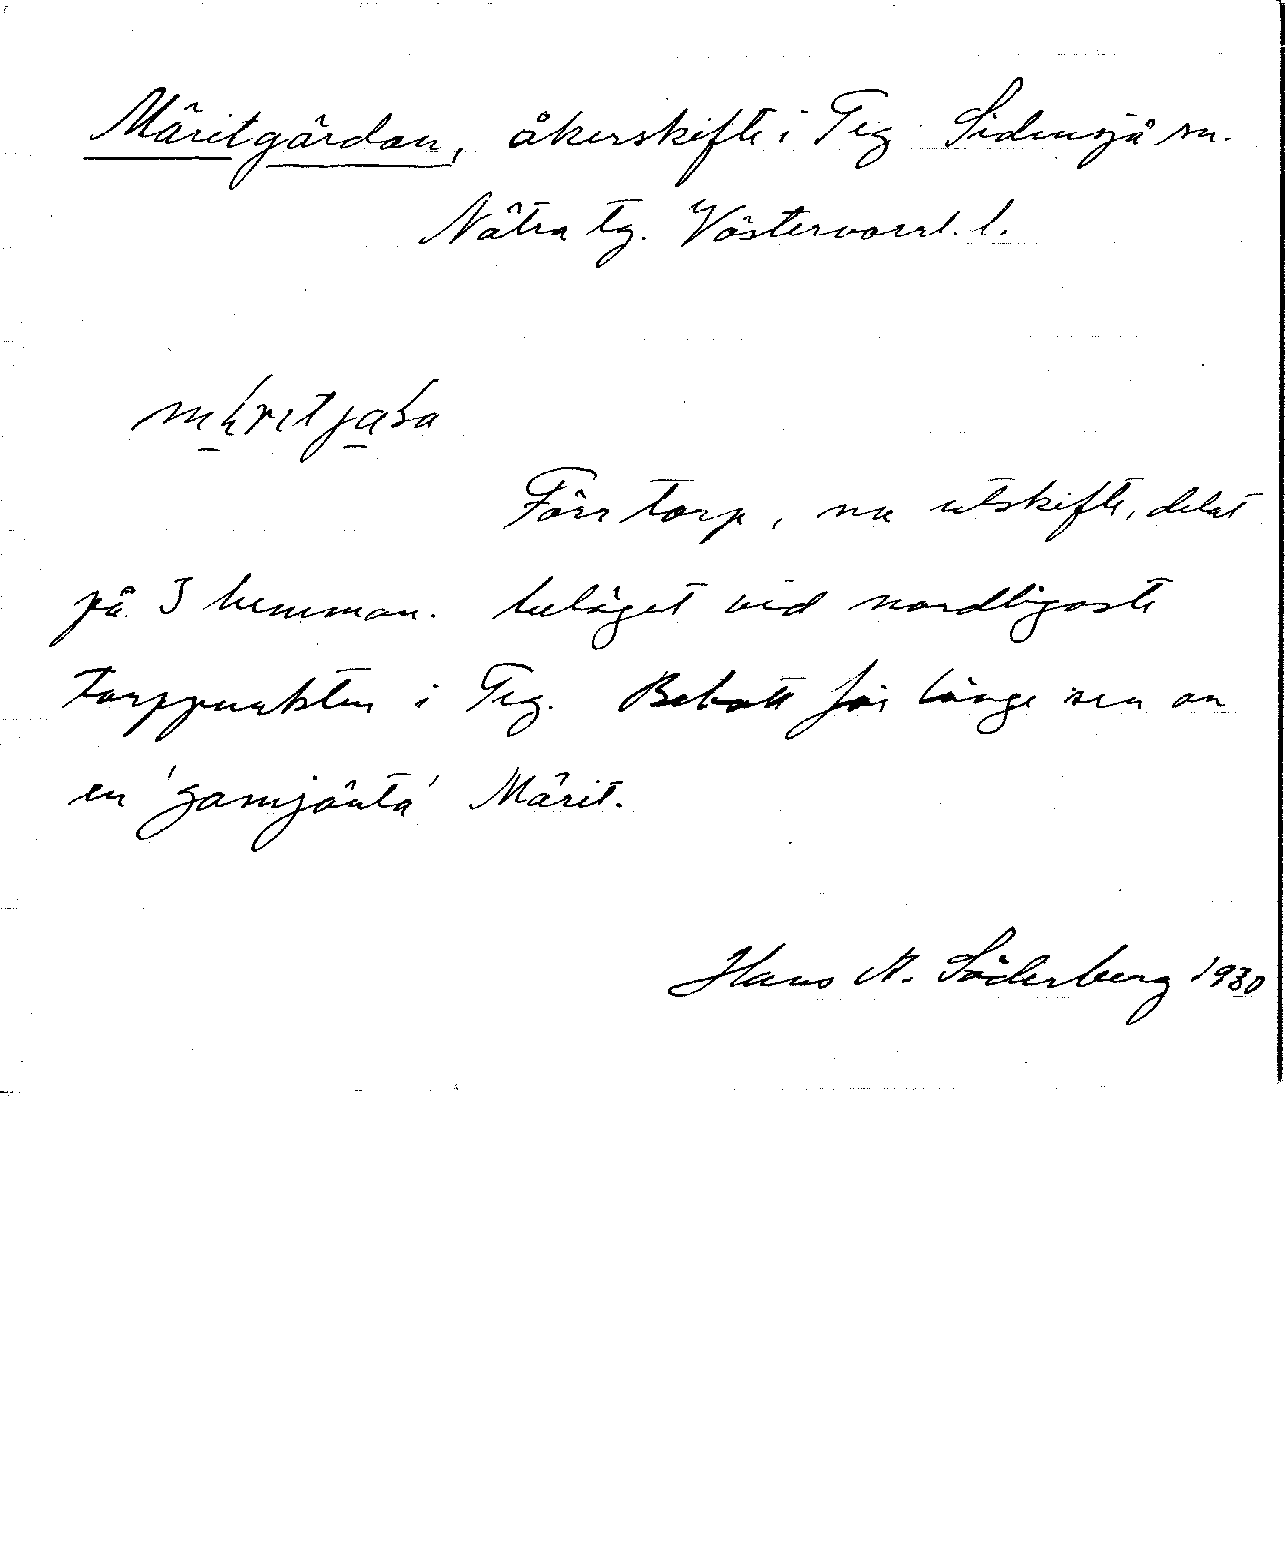 Märitgärdan, åkerskifte i Teg Sidensjö sn.
Nätra tg. Västernorrl. l.
Förr torp, nu utskifte, delat
på 3 hemman. beläget vid nordligaste
torppunkten i Teg. Bebott för länge sen av
en 'gamjänta' Märit.
Hans A. Söderberg 1930